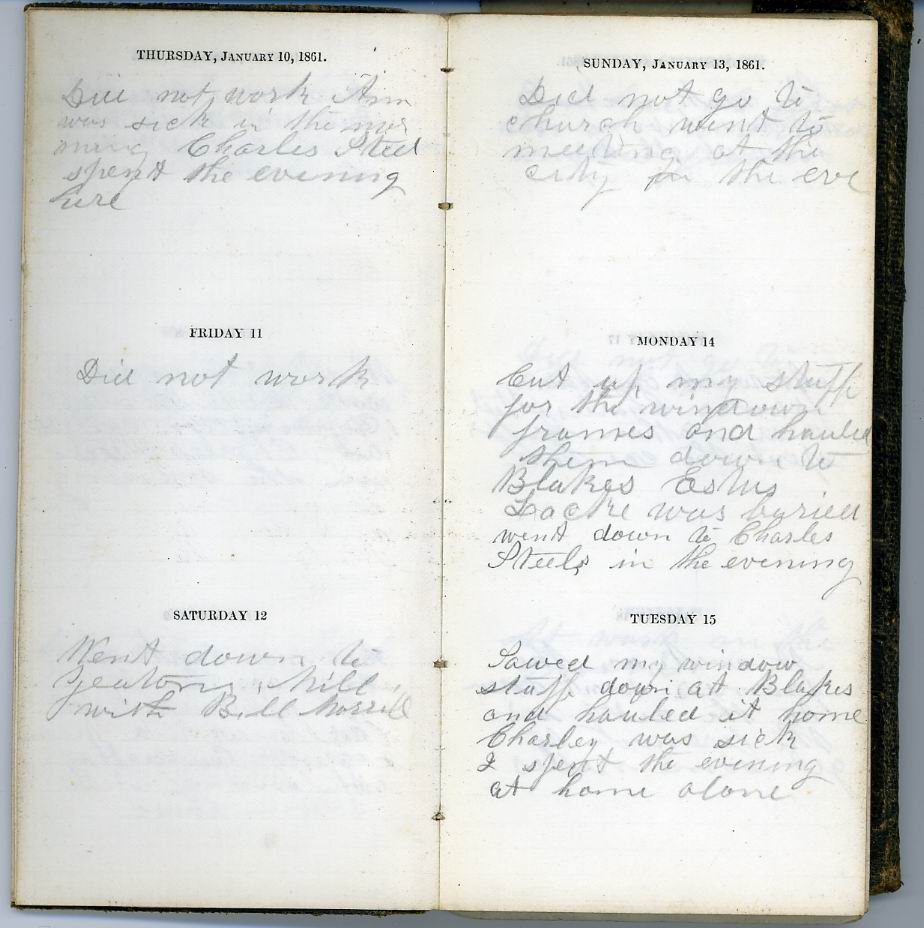 THURSDAY, JANUARY 10, 1861.
Did not work Ann
was sick in the mor
ning Charles Steel
spent the evening
here
FRIDAY 11
Did not work
SATURDAY 12
Went down to
Yeatons Mill
with Bill Morrill
SUNDAY, JANUARY 13, 1861.
Did not go to
church went to
meeting at the
city in the eve
MONDAY 14
Cut up my stuff
for the window
frames and hauled
them down to
Blakes
was buried
went down to Charles
Steels in the evening
TUESDAY 15
Sawed my window
stuff down at Blakes
and hauled it home
Charley was sick
I spent the evening
at home alone